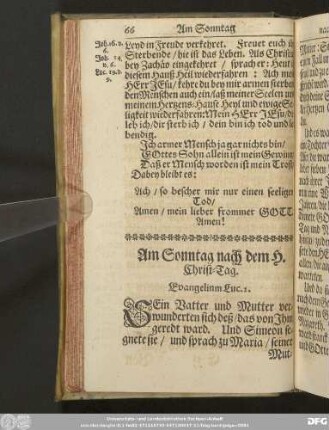 66 Am Sonntag
Leyd in Freude verkehret. Freuet euch ih
Sterbende / hie ist das Leben. Als Christus
bey Zachäo eingekehret / sprach er: Heut ist
diesem Hauß Heil wiederfahren: Ach mein
HErr JEsu / kehre du bey mir armen sterben-
den Menschen auch ein / laß meiner Seelen und
meinem Hertzens-Hause Heyl und ewige Se-
ligkeit wiederfahren: Mein HErr JEsu / dir
leb ich / dir sterb ich / dein bin ich tod und le-
bendig.
Ich armer Mensch ja gar nichts bin /
GOttes Sohn allein ist mein Gewinn
Daß er Mensch worden ist mein Trost
Dabey bleibt es:
Ach / so bescher mir nur einen seeligen
Tod /
Amen / mein lieber frommer GOTT
Amen!
Am Sonntag nach dem H.
Christ-Tag.
Evangelium Luc. 2.
SEin Vatter und Mutter ver-
wunderten sich deß / das von Ihm
geredt ward. Und Simeon se-
gnete sie / und sprach zu Maria / seiner
Mut-
Joh. 16. v.
6.
Joh. 14.
v. 6.
Luc. 19. v.
9.
DFG